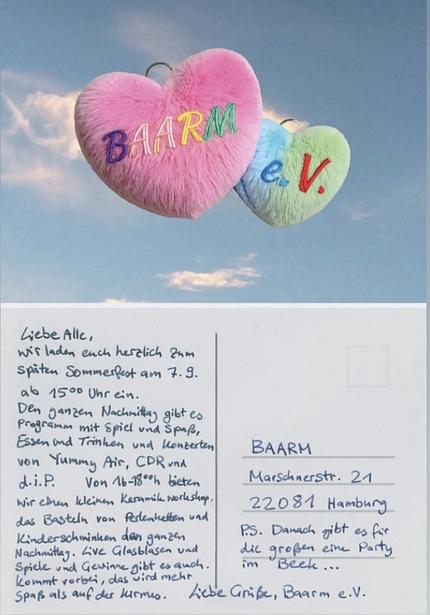 BAARM
e.V.
Liebe Alle,
wir laden euch herzlich zum
späten Sommerfest am 7.9.
ab 15⁰⁰ Uhr ein.
Den ganzen Nachmittag gibt es
Programm mit Spiel und Spaß,
Essen und Trinken und Konzerten
von Yummy Air, CDR und
d.i.P. Von 16-18⁰⁰h bieten
wir einen kleinen Keramikworkshop,
das Basteln von Perlenketten und
Kinderschminken den ganzen
Nachmittag. Live Glasblasen und
Spiele und Gewinne gibt es auch.
Kommt vorbei, das wird mehr
Spaß als auf der Kirmes. Liebe Grüße, Baarm e.V.
BAARM
Marschnerstr. 21
22081 Hamburg
P.S. Danach gibt es für
die großen eine Party
im Beek...